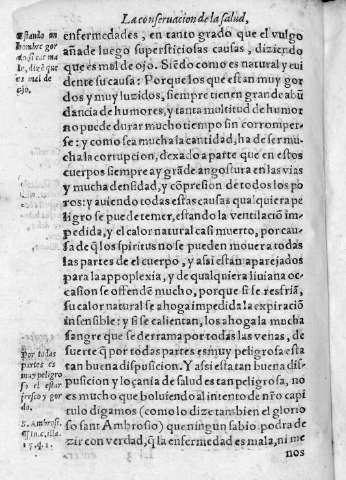 La conseruacion de la salud,
enfermedades, en tanto grado que el vulgo
añade luego supersticiosas causas, diziendo
que es mal de ojo. Siẽdo como es natural y eui
dente su causa: Porque los que estan muy gor
dos y muy luzidos, siempre tienen gran de abũ
dancia de humores, y tanta multitud de humor
no puede durar mucho tiempo sin corromper-
se: y como sea mucha la cantidad, ha de ser mu-
cha la corrupcion, dexado a parte que en estos
cuerpos siempre ay grãde angostura en las vias
y mucha densidad, y cõpresion de todos los po
ros: y auiendo todas estas causas qualquiera pe
ligro se puede temer, estando la ventilaciõ im-
pedida, y el calor natural casi muerto, por cau-
sa de q̃ los spiritus no se pueden mouer a todas
las partes de el cuerpo, y assi estan aparejados
para la appoplexia, y de qualquiera liuiana oc-
casion se offenden mucho, porque si se resfriã,
su calor natural se ahoga impedida la expiraciõ
insensible: y si se calientan, los ahoga la mucha
sangre que se derrama por todas las venas, de
suerte q̃ por todas partes es muy peligrosa esta
tan buena disposicion. Y assi esta tan buena dis-
pusicion y loçania de salud es tan peligrosa, no
es mucho que boluiendo al intento de nr̃o capi
tulo digamos (como lo dize tambien el glorio
so sant Ambrosio) que ningun sabio podra de
zir con verdad, q̃ la enfermedad es mala, ni me
nos
estando un
hombre gor
do si cae ma
lo, dizẽ que
es mal de
ojo.
Por todas
partes es
muy peligro
so el estar
fresco y gor
do.
S. Ambrosi.